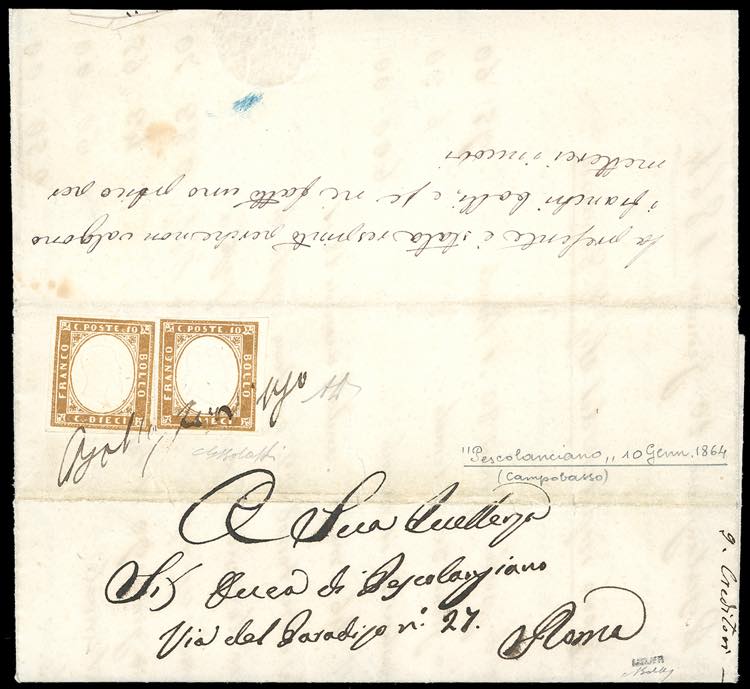 la presente è stata respinta perche non valgono
i franchi bolli, e se ne fatto uno pratico per
metterci i nuovi
C. POSTE. 10
FRANCO
BOLLO
C. DIECI
C. POSTE. 10
FRANCO
BOLLO
C. DIECI
"Pescolanciano„ 10 Genn. 1864
(Campobasso)
A Sua Eccellenza
Sig. Duca di Pescolanciano
Via del Paradiso n.° 27.
Roma
g. Creditori